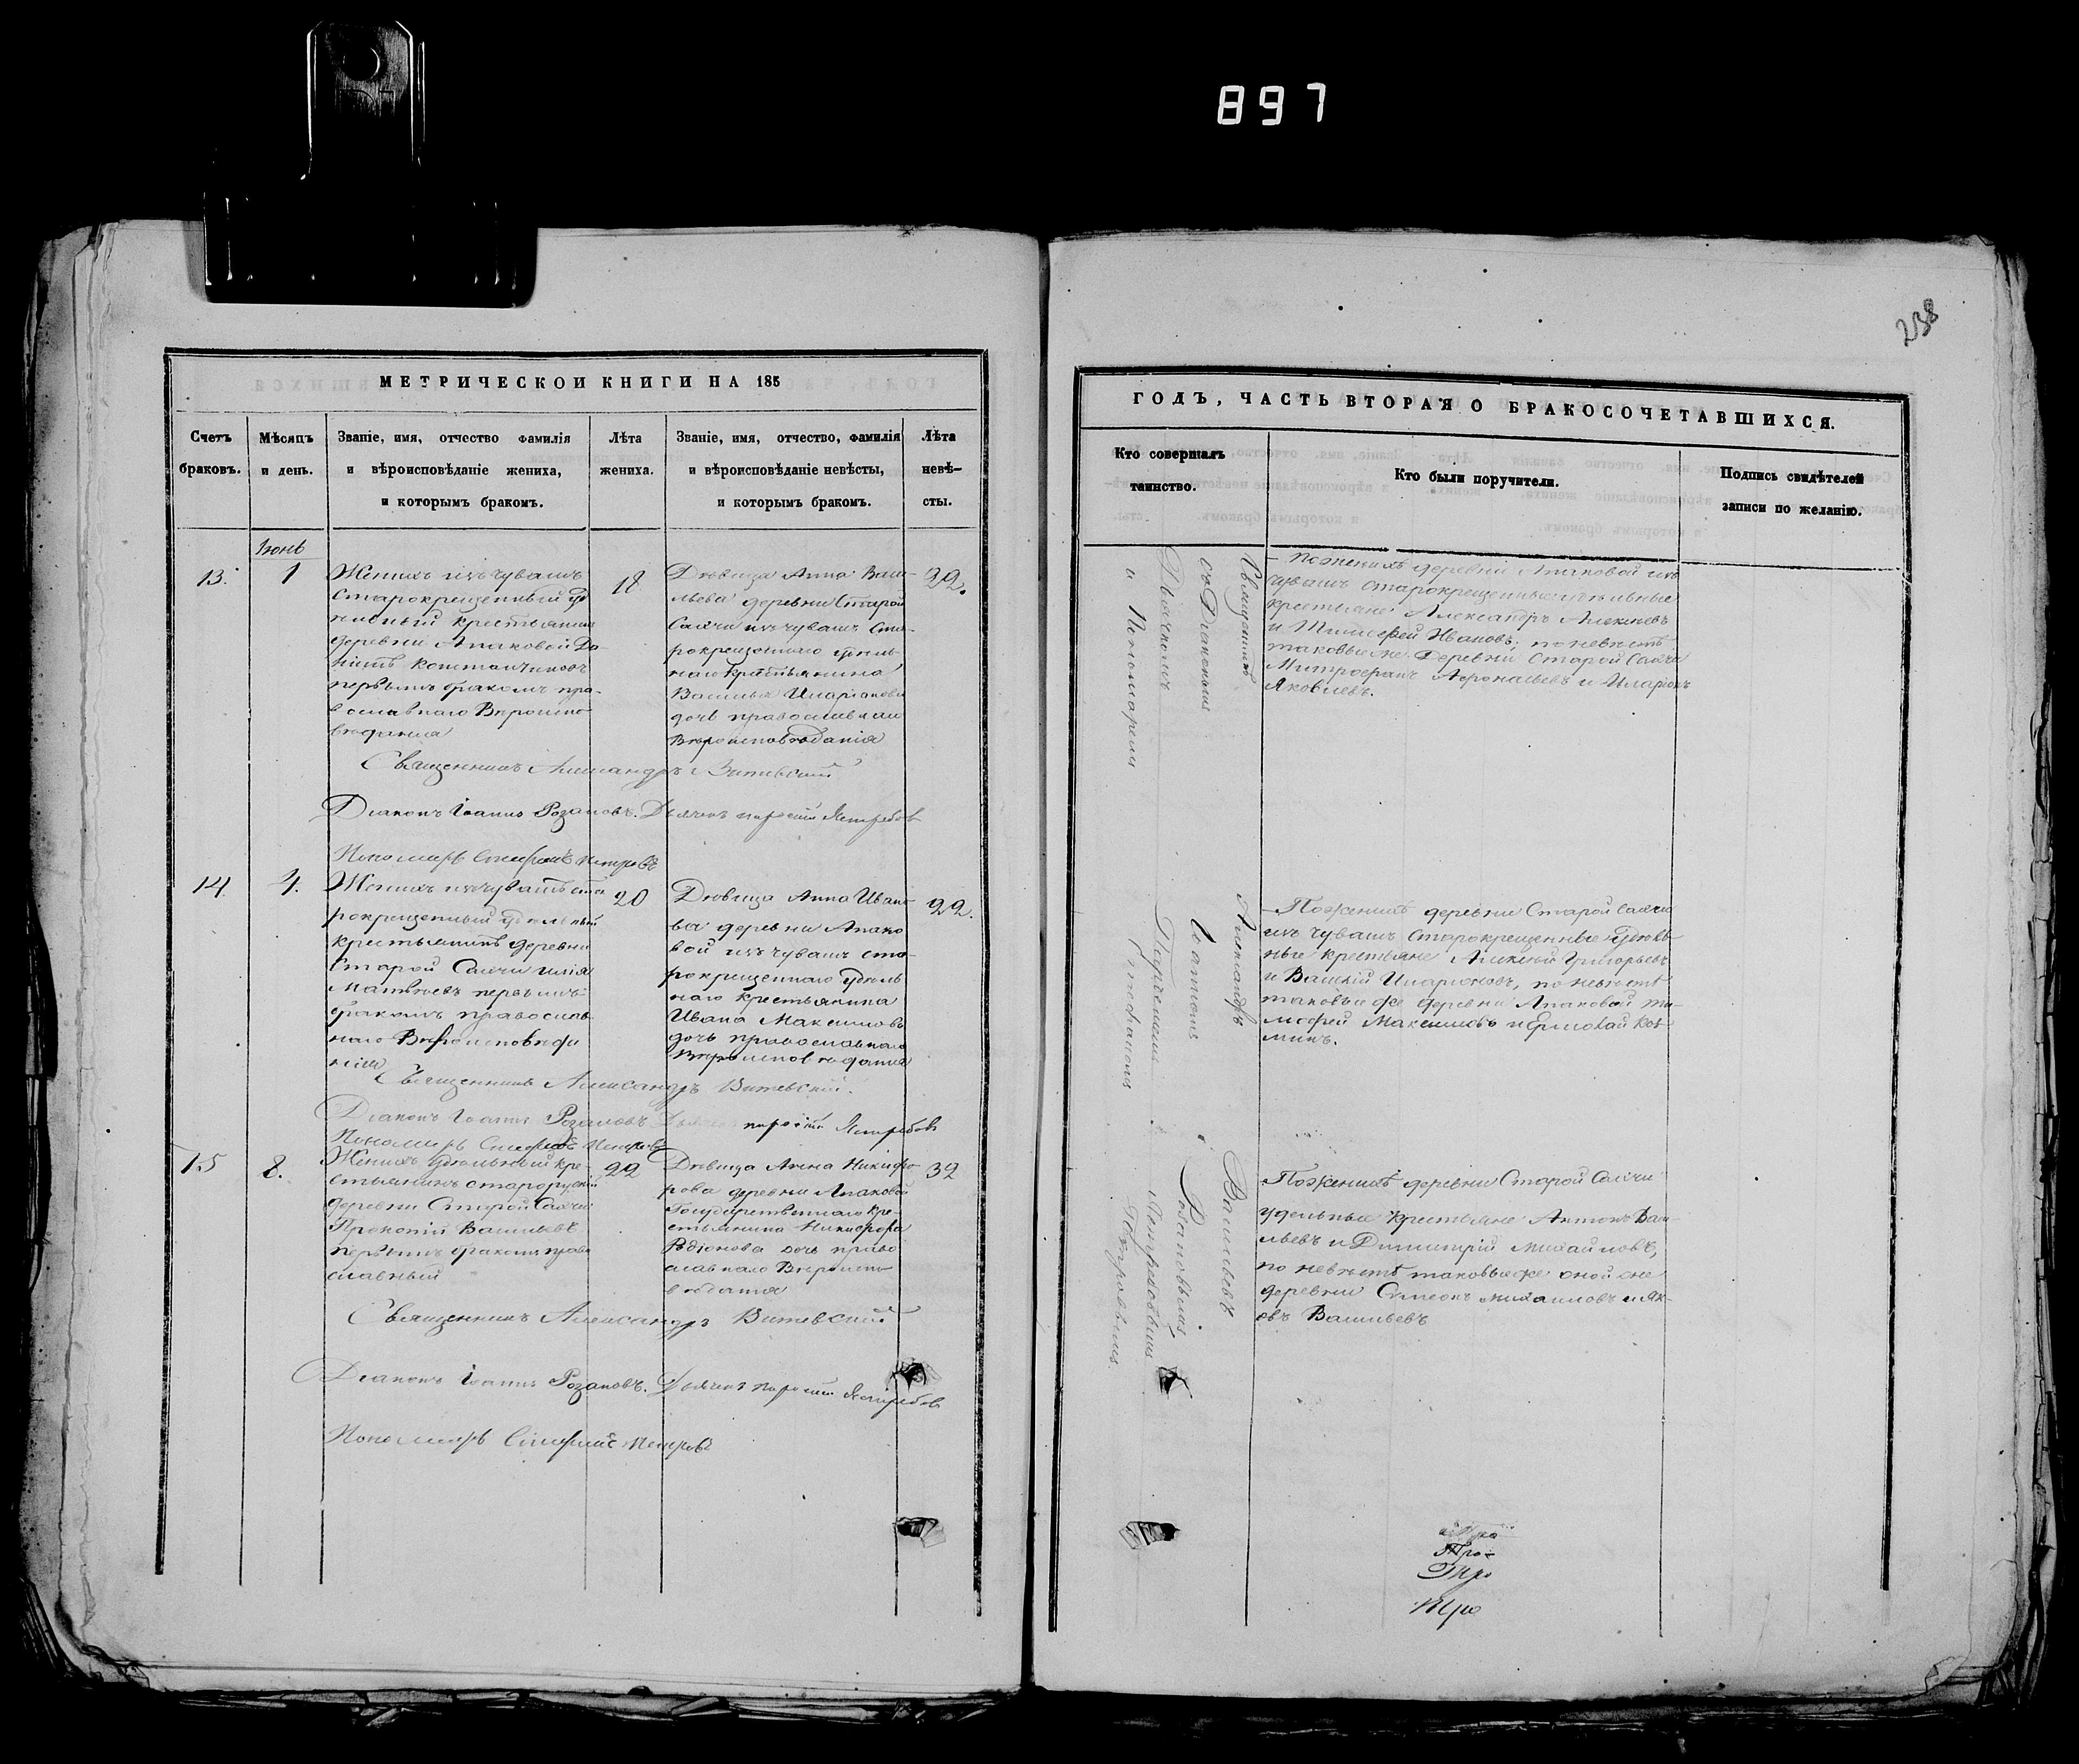 897
238
МЕТРИЧЕСКОИ КНИГИ НА 185
Счетъ браковъ.
Мѣсяцъ и день.
Званіе, имя, отчество фамилія
и вѣроисповѣданіе жениха,
и которымъ бракомъ.
Лѣта жениха.
Званіе, имя, отчество, фамилія
и вѣроисповѣданіе невѣсты,
и которымъ бракомъ.
Лѣта невѣ-
сты.
Іюнь
13. 1
Женихъ изъ чувашъ
старокрещенный уд
крестьянинъ
деревни Апаковой Да-
первымъ бракомъ пра-
вославнаго Вѣроиспо
вѣданія
18
Дѣвица Анна Васи-
льева деревни Старой
Саячи изъ чувашъ ста-
рокрещеннаго удѣль
наго крестьянина
Василья Иларіонова
дочь православнаго
Вѣроисповѣданія
22.
Священникъ Александръ Витевскій
Діаконъ Іоаннъ Розановъ. Дьячекъ Ястребовъ
Пономарь Петровъ
14 4.
Женихъ изъ чувашъ ста
рокрещенный удѣльный
крестьянинъ деревни
Старой Саячи Илія
Матвѣевъ первымъ
бракомъ православ
наго Вѣроисповѣда
нія
20
Дѣвица Анна Ивано
ва деревни Апако
вой изъ чувашъ ста-
рокрещеннаго удѣль
наго крестьянина
Ивана Максимова
дочь православнаго
Вѣроисповѣданія
22.
Священникъ Александръ Витевскій.
Діаконъ Іоаннъ Розановъ Ястребовъ
Пономарь Петровъ
15 8.
Женихъ удѣльный кре-
стьянинъ старорускій
деревни Старой Саячи
Прокопій Васильевъ
первымъ бракомъ право
славный
22
Дѣвица Анна Никифо
рова деревни Апаковой
Государственнаго кре-
стьянина Никифора
Родіонова дочь право
славнаго Вѣроиспо
вѣданія
32
Священникъ Александръ Витевскій
Діаконъ Іоаннъ Розановъ. Дьячекъ Ястребовъ
Пономарь Петровъ
ГОДЪ, ЧАСТЬ ВТОРАЯ О БРАКОСОЧЕТАВШИХСЯ.
Кто совершалъ
таинство.
Кто были поручители.
Подпись свидѣтелей
записи по желанію.
Священникъ Александръ Васильевъ
съ Діакономъ Іоанномъ Розановымъ,
Дьячкомъ Ястребовымъ
и Пономаремъ Петровымъ.
По женихѣ деревни Апаковой изъ
чувашъ старокрещенные удѣльные
крестьяне Александръ Алексѣевъ
и Тимофей Ивановъ; по невѣстѣ
таковые же деревни Старой Саячи
Митрофанъ Афонасьевъ и Иларіонъ
Яковлевъ.
По женихѣ деревни Старой Саячи
изъ чувашъ старокрещенные удѣль-
ные крестьяне Алексѣй Григорьевъ
и Василій Иларіоновъ, по невѣстѣ
таковые же деревни Апаковой Ти-
мофей Максимовъ и Ермолай Коз-
минъ.
По женихѣ деревни Старой Саячи
удельные крестьяне Антонъ Васи
льевъ и Димитрій Михайловъ,
по невѣстѣ таковые же оной же
деревни Симеонъ Михайловъ и Як-
овъ Васильевъ
Про-